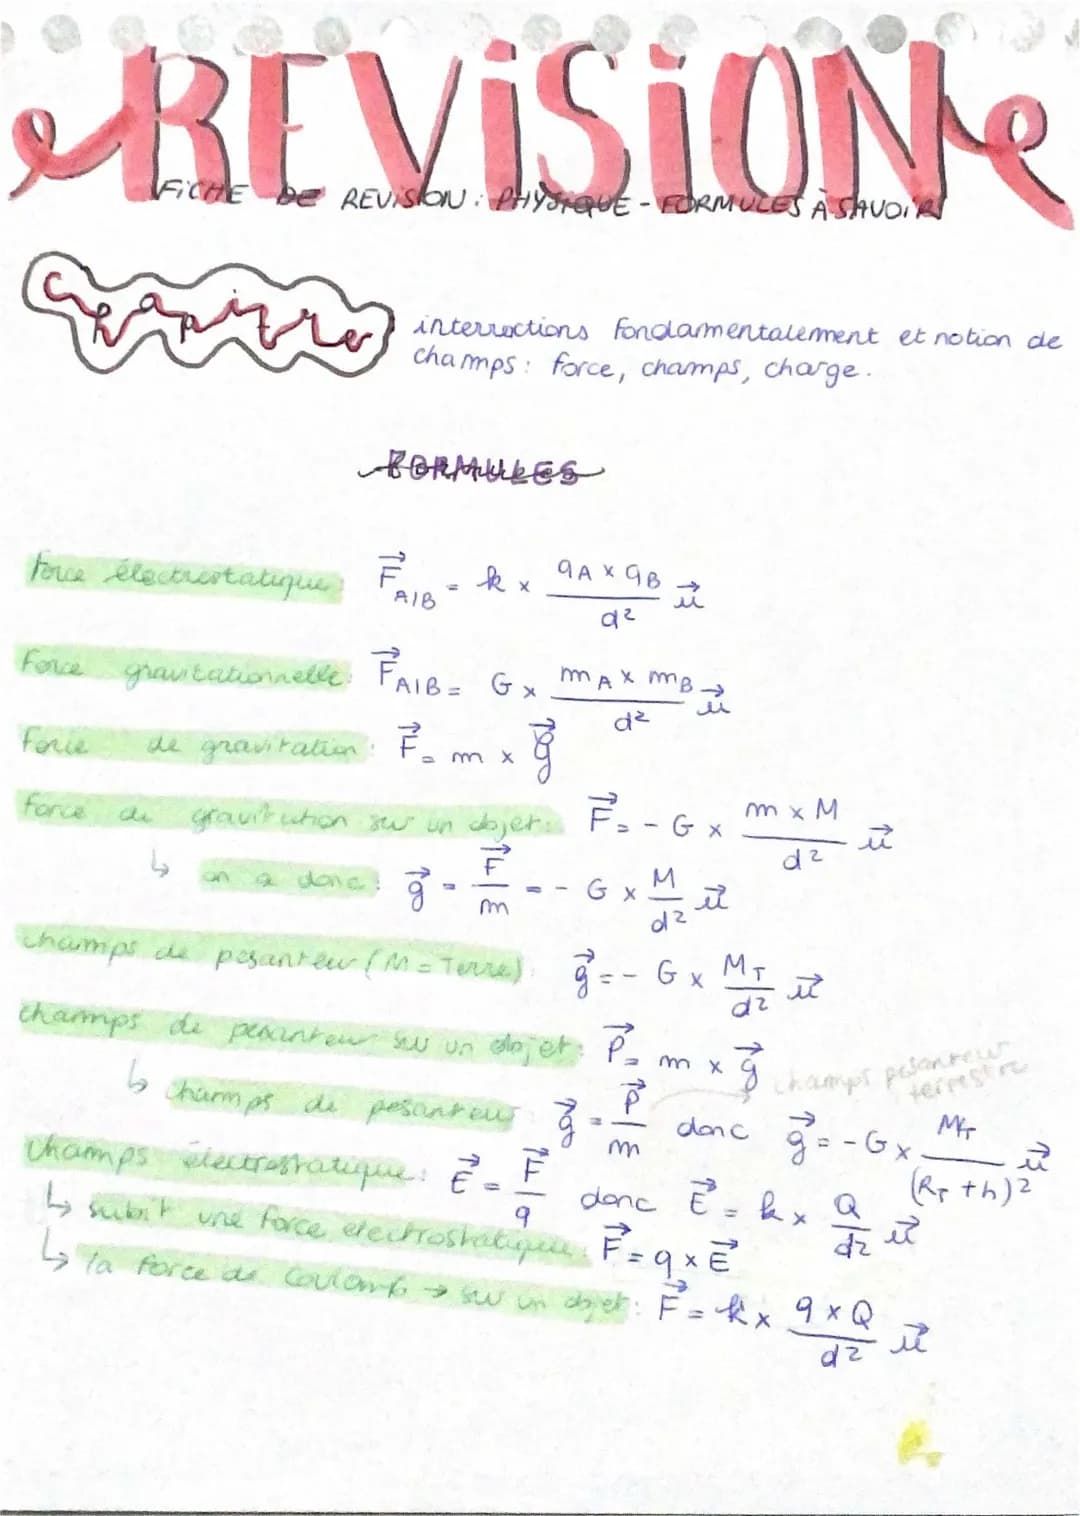 REVISION
FICHE DE REVISION : PHYSIQUE - FORMULES À SAVOIR
Chapitre
interractions fondarmentalement et notion de
champs : force, champs, charge.
FORMULES
Force électrostatique : F⃗ A/B = k × (qA × qB)/d² u⃗
Force gravitationnelle : F⃗ A/B = G × (mA × mB)/d² u⃗
Force de gravitation : F⃗ = m × g⃗
Force de gravitation sur un objet : F⃗ = - G × (m × M)/d² u⃗
↳ on a donc : g⃗ = F⃗/m = - G × M/d² u⃗
champs de pesanteur (M = Terre) : g⃗ = - G × M_T/d² u⃗
champs de pesanteur sur un objet : P⃗ = m × g⃗
champs pesanteur terrestre
↳ champs de pesanteur : g⃗ = P⃗/m donc g⃗ = - G × M_T/(R_T + h)² u⃗
champs électrostatique : E⃗ = F⃗/q donc E⃗ = k × Q/d² u⃗
↳ subit une force electrostatique : F⃗ = q × E⃗
↳ la force de Coulomb → sur un objet : F⃗ = k × (q × Q)/d² u⃗